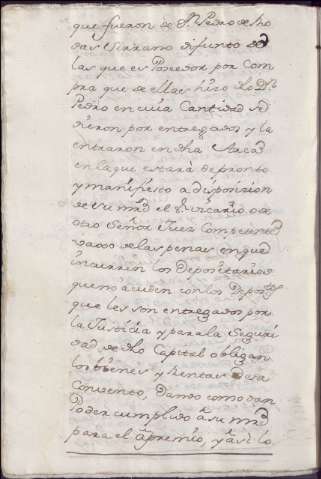 que fueron de Dn Pedro de
das Serrano difunto de
las que es Posedor por com
pra que de ellas hizo dho Dn
Pedro en cuia Cantidad se
dieron por entregados y la
entraron en dha Arca
en la que estará de pronto
y manifiesto a disposizion
de su mrd el Sr Vicario, o de
otro Señor Juez Competente
de las penas en que
incurrin los Depositarios
que no acuden con los
que les son entregados por
la Justicia y para la Seguri
dad de dho Capital obligan
los bienes y Rentas de sta
Convento, Dando como dan
Poder cumplido a su mrd
para el apremio, y asi lo